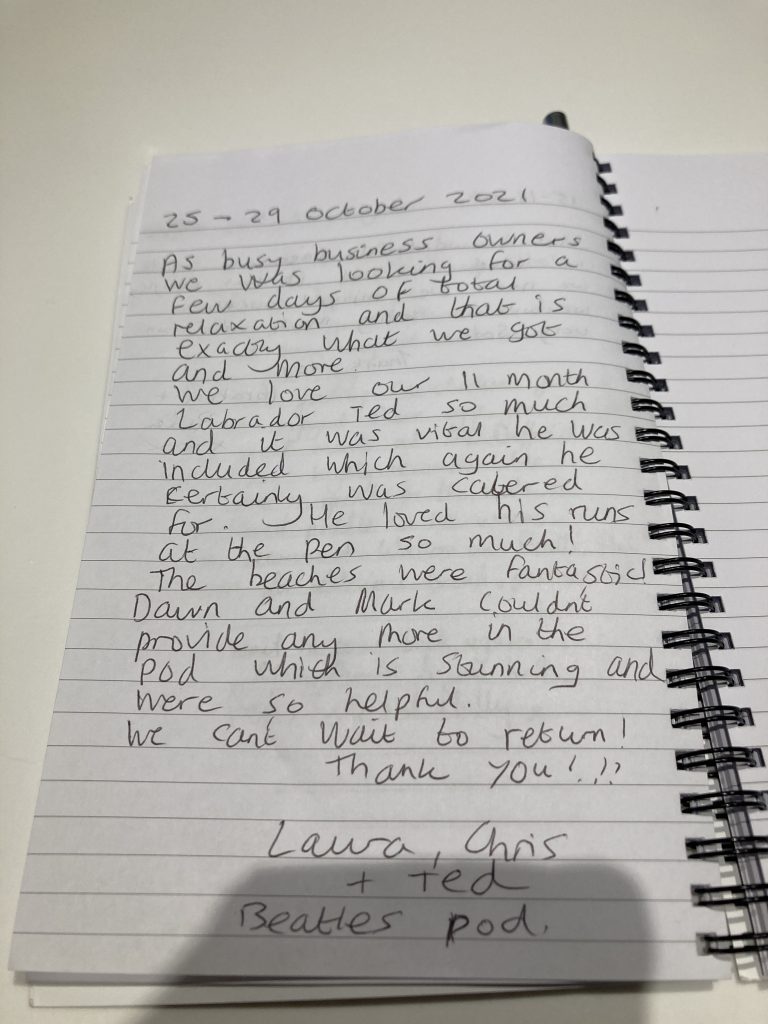 25 - 29 October 2021
As busy business owners
we was looking for a
few days of total
relaxation and that is
exactly what we got
and more
we love our 11 month
Labrador Ted so much
and it was vital he was
included which again he
certainly was catered
for. He loved his runs
at the pen so much!
The beaches were fantastic!
Dawn and Mark couldn't
provide any more in the
pod which is stunning and
were so helpful.
We can't wait to return!
Thank you!!!!
Laura, Chris
+ Ted
Beatles pod.